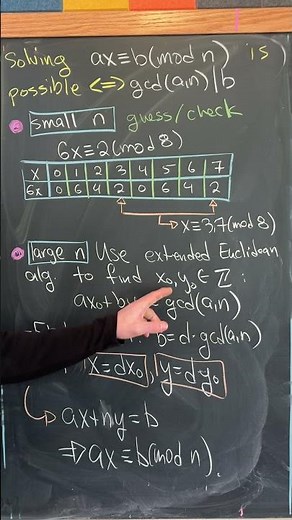 Solving ax≡b(mod n) is
possible <=> gcd(a,n)|b
small n guess/check
6x≡2(mod 8)
X 0 1 2 3 4 5 6 7
6x 0 6 4 2 0 6 4 2
x≡3,7(mod 8)
large n Use extended Euclidean
alg. to find x₀,y₀∈ℤ:
ax₀+by gcd(a,n)
b=d·gcd(a,n)
x=dx₀, y=d·y₀
ax+ny=b
⇒ax≡b(mod n).